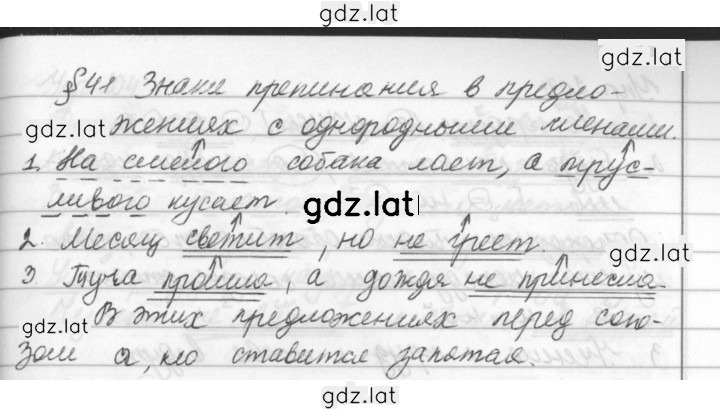 gdz.lat
gdz.lat
§41 Знаки препинания в предло-
gdz.lat
жениях с однородными членами.
1. На смелого собака лает, а трус-
ливого кусает.
gdz.lat
2. Месяц светит, но не греет.
gdz.lat
3 Туча прошла, а дождя не принесла.
gdz.lat
В этих предложениях перед сою-
зом а, но ставится запятая.
gdz.lat